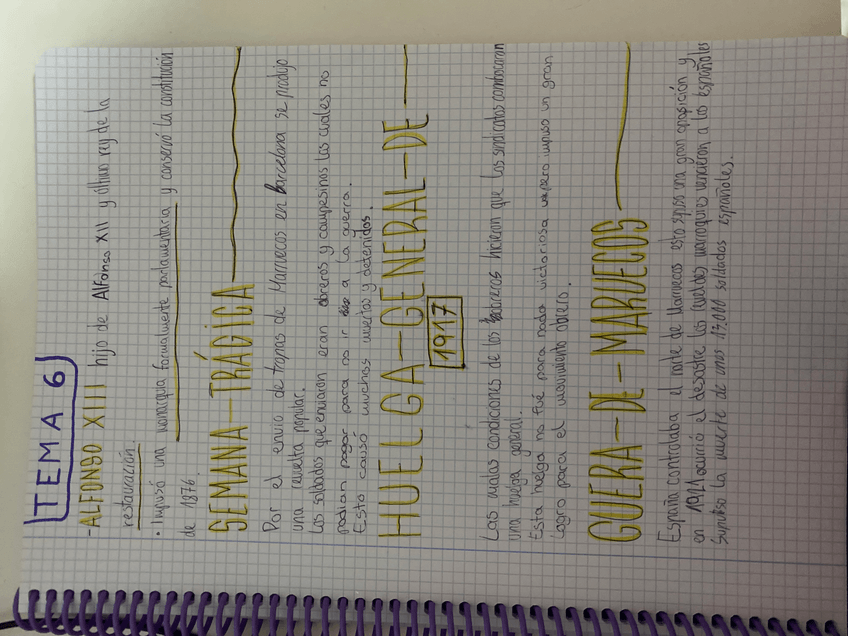 TEMA 6
-ALFONSO XIII hijo de Alfonso XII y último rey de la
restauración.
· Impusó una monarquia formalmente parlamentaria y conservó la constitución
de 1876.
SEMANA-TRÁGICA
Por el envio de tropas de Marruecos en Barcelona se produjo
una revuelta popular.
Los soldados que enviaron eran obreros y campesinos los cuales no
podian pagar para no ir a la guerra.
Esto causó muchas muertos y detenidos.
HUELGA-GENERAL-DE
1917
Las malas condiciones de los obreros hicieron que los sindicatos combocaran
una huelga general.
Esta huelga no fué para nada victoriosa pero impuso un gran
logro para el movimiento obrero.
GUERA-DE-MARUECOS
España controlaba el norte de Marruecos esto supuso una gran oposición y
en 1921 ocurrió el desastre los (rueldes) marroquies vencieron a los españoles
Supuso la muerte de unos 13.000 soldados españoles.